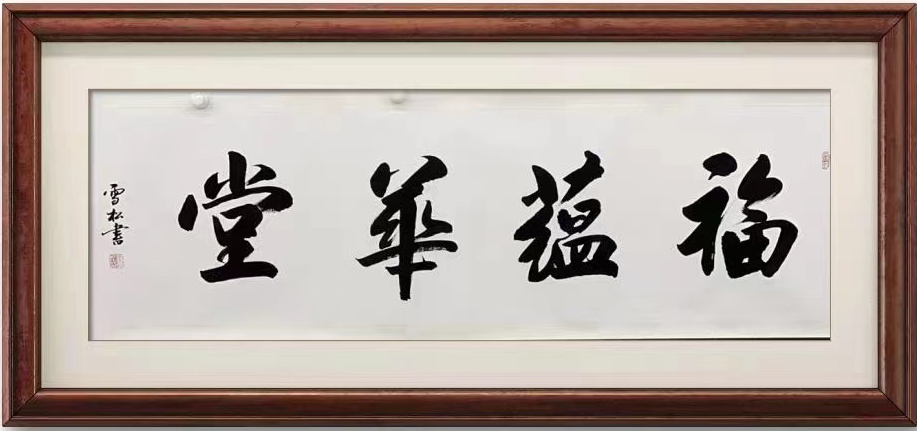 福蘊華堂
雪松書